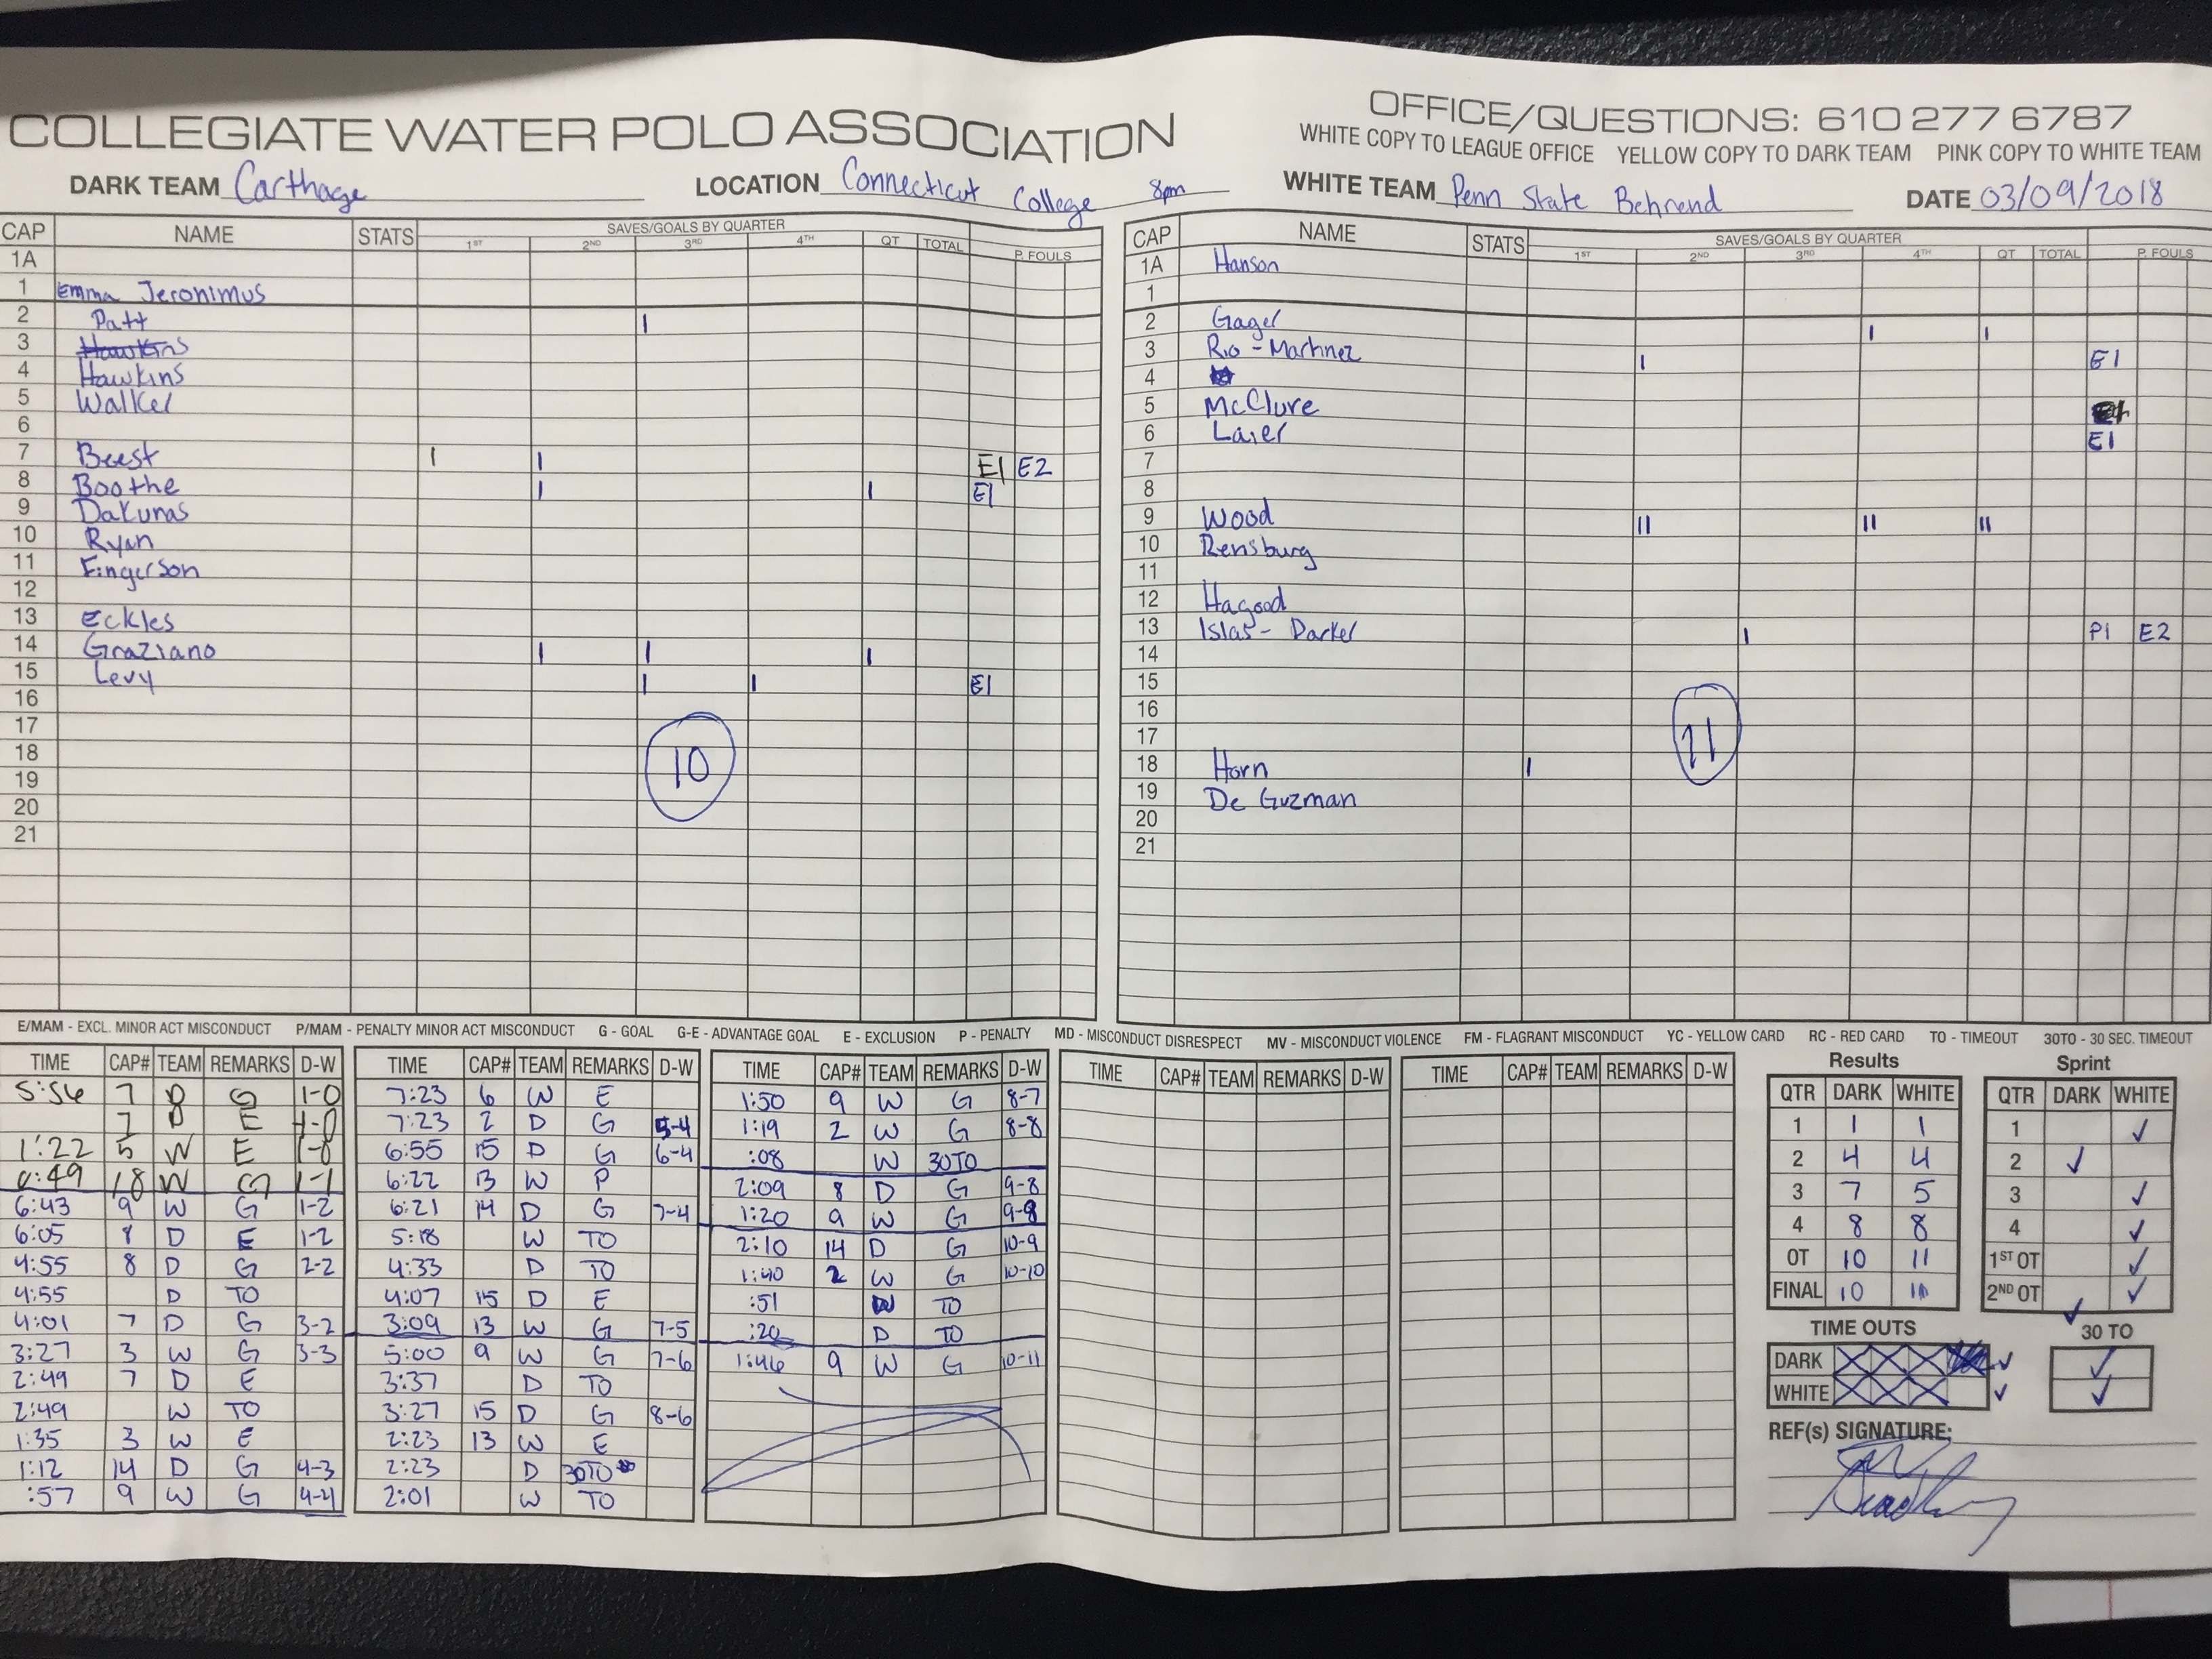 COLLEGIATE WATER POLO ASSOCIATION
OFFICE/QUESTIONS: 610 277 6787
WHITE COPY TO LEAGUE OFFICE YELLOW COPY TO DARK TEAM PINK COPY TO WHITE TEAM
DARK TEAM Carthage LOCATION Connecticut College 8pm WHITE TEAM Penn State Behrend DATE 03/09/2018
CAP NAME STATS SAVES/GOALS BY QUARTER 1ST 2ND 3RD 4TH QT TOTAL P. FOULS
1A
1 Emma Jeronimus
2 Patt |
3 Hawkins
4 Hawkins
5 Walker
6
7 Beest | | E1 E2
8 Boothe | | E1
9 Dakunas
10 Ryan
11 Fingerson
12
13 Eckles
14 Graziano | | |
15 Levy | | E1
16
17
18
19
20
21
10
CAP NAME STATS SAVES/GOALS BY QUARTER 1ST 2ND 3RD 4TH QT TOTAL P. FOULS
1A Hanson
1
2 Gager | |
3 Rio-Martinez | E1
4
5 McClure
6 Laier E1
7
8
9 Wood || || ||
10 Rensburg
11
12 Hagood
13 Islas-Darkel | P1 E2
14
15
16
17
18 Horn |
19 De Guzman
20
21
11
E/MAM - EXCL. MINOR ACT MISCONDUCT P/MAM - PENALTY MINOR ACT MISCONDUCT G - GOAL G-E - ADVANTAGE GOAL E - EXCLUSION P - PENALTY MD - MISCONDUCT DISRESPECT MV - MISCONDUCT VIOLENCE FM - FLAGRANT MISCONDUCT YC - YELLOW CARD RC - RED CARD TO - TIMEOUT 30TO - 30 SEC. TIMEOUT
TIME CAP# TEAM REMARKS D-W
5:56 7 D G 1-0
7 D E 1-0
1:22 5 W E 1-0
0:49 18 W G 1-1
6:43 9 W G 1-2
6:05 8 D E 1-2
4:55 8 D G 2-2
4:55 D TO
4:01 7 D G 3-2
3:27 3 W G 3-3
2:49 7 D E
2:49 W TO
1:35 3 W E
1:12 14 D G 4-3
:57 9 W G 4-4
TIME CAP# TEAM REMARKS D-W
7:23 6 W E
7:23 2 D G 5-4
6:55 15 D G 6-4
6:22 13 W P
6:21 14 D G 7-4
5:18 W TO
4:33 D TO
4:07 15 D E
3:09 13 W G 7-5
5:00 9 W G 7-6
3:37 D TO
3:27 15 D G 8-6
2:23 13 W E
2:23 D 30TO
2:01 W TO
TIME CAP# TEAM REMARKS D-W
1:50 9 W G 8-7
1:19 2 W G 8-8
:08 W 30TO
2:09 8 D G 9-8
1:20 9 W G 9-9
2:10 14 D G 10-9
1:40 2 W G 10-10
:51 W TO
:20 D TO
1:46 9 W G 10-11
TIME CAP# TEAM REMARKS D-W
TIME CAP# TEAM REMARKS D-W
Results
QTR DARK WHITE
1 1 1
2 4 4
3 7 5
4 8 8
OT 10 11
FINAL 10 11
Sprint
QTR DARK WHITE
1 ✓
2 ✓
3 ✓
4 ✓
1ST OT ✓
2ND OT ✓
✓
TIME OUTS
DARK X X X ✓
WHITE X X X ✓
30 TO
✓
✓
REF(s) SIGNATURE: